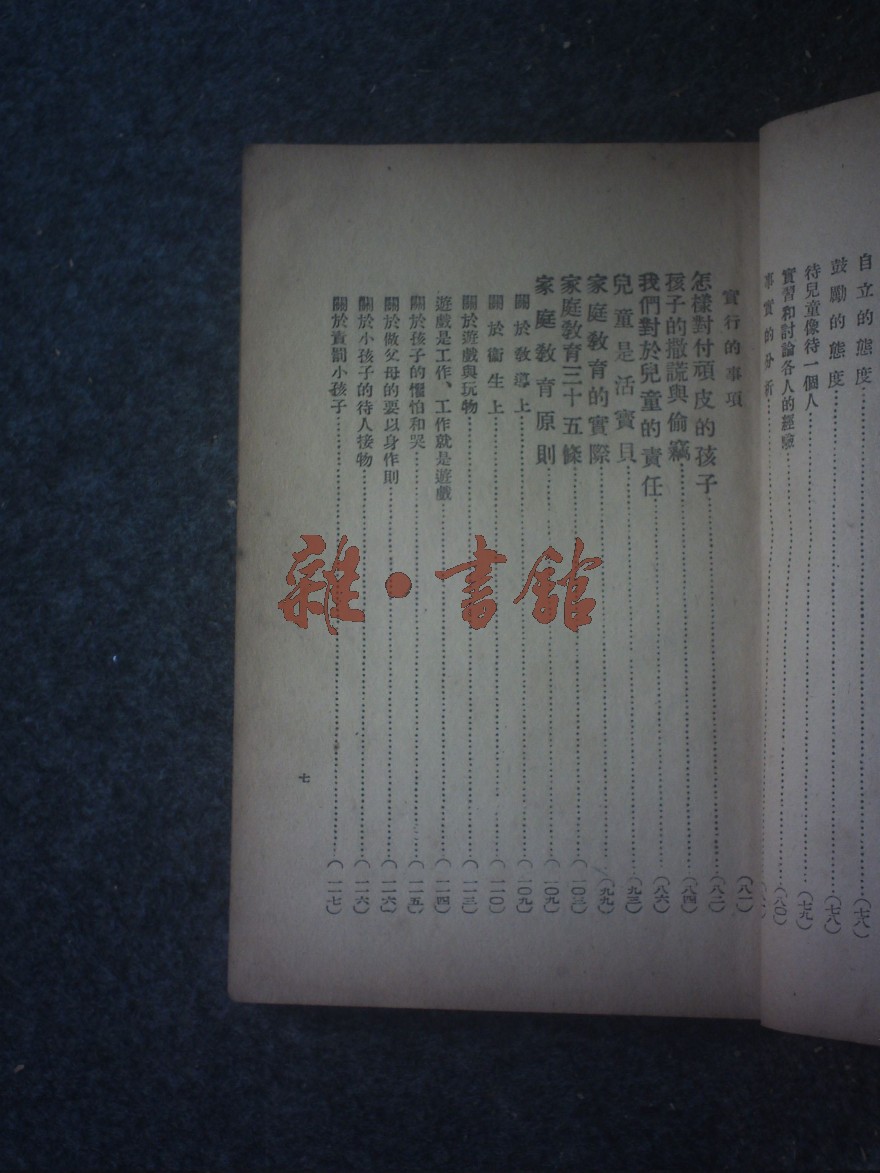 自立的態度⋯⋯(七八)
鼓勵的態度⋯⋯(七八)
待兒童像待一個人⋯⋯(七九)
實習和討論各人的經驗⋯⋯(八〇)
事實的分析⋯⋯
實行的事項⋯⋯(八一)
怎樣對付頑皮的孩子⋯⋯(八二)
孩子的撒謊與偷竊⋯⋯(八四)
我們對於兒童的責任⋯⋯(八六)
兒童是活寶貝⋯⋯(九三)
家庭教育的實際⋯⋯(九九)
家庭教育三十五條⋯⋯(一〇三)
家庭教育原則⋯⋯(一〇九)
關於教導上⋯⋯(一〇九)
關於衞生上⋯⋯(一一〇)
關於遊戲與玩物⋯⋯(一一三)
遊戲是工作、工作就是遊戲⋯⋯(一一四)
關於孩子的懼怕和哭⋯⋯(一一五)
關於做父母的要以身作則⋯⋯(一一六)
關於小孩子的待人接物⋯⋯(一一六)
關於責罰小孩子⋯⋯(一一七)
七
雜·書館